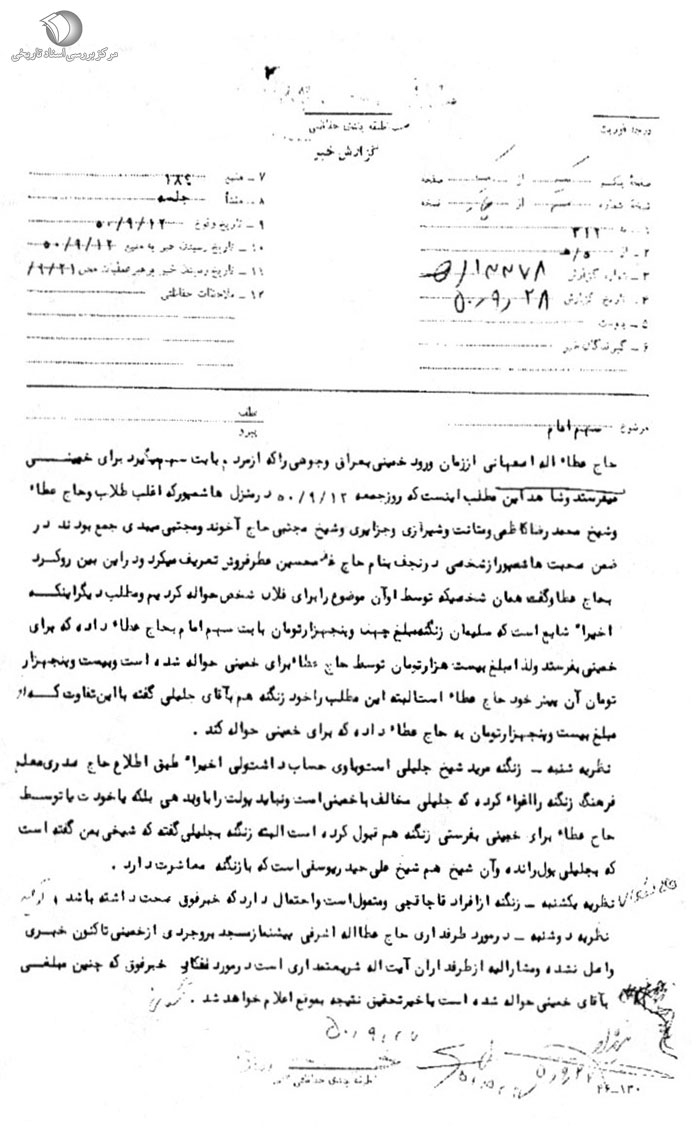 مرکز بررسی اسناد تاریخی
۲
طبقه بندی حفاظتی
گزارش خبر
درجه فوریت
صفحه یکم از صفحه
نسخه شماره از نسخه
۱ - به ۳۱۲
۲ - از ۵/هـ
۳ - شماره گزارش ۱۲۴۷۸/هـ
۴ - تاریخ گزارش ۵۰٫۹٫۲۸
۵ - پیوست
۶ - گیرندگان خبر
۷ - منبع ۱۸۹
۸ - منشأ جلسه
۹ - تاریخ وقوع ۵۰/۹/۱۲
۱۰ - تاریخ رسیدن خبر به منبع ۵۰/۹/۱۲
۱۱ - تاریخ رسیدن خبر به رهبر عملیات محل ۹/۲۱/
۱۲ - ملاحظات حفاظتی
موضوع سهم امام
عطف
پیرو
حاج عطاء اله اصفهانی اززمان ورود خمینی بعراق وجوهی راکه ازمردم بابت سهم میگیرد برای خمینی
میفرستد وشاهد این مطلب اینست که روزجمعه ۵۰/۹/۱۲ درمنزل هاشمپور که اغلب طلاب وحاج عطاء
وشیخ محمد رضا کاظمی ومتانت وشیرازی وجزایری وشیخ مجتبی حاج آخوند ومجتبی میبدی جمع بودند در
ضمن صحبت هاشمپور ازشخصی درنجف بنام حاج محسین عطرفروش تعریف میکرد ودراین بین روکرد
بحاج عطا وگفت همان شخصیکه توسط اوآن موضوع رابرای فلان شخص حواله کردیم ومطلب دیگراینکه
اخیراً شایع است که سلیمان زنگنه مبلغ چهل وپنجهزارتومان بابت سهم امام بحاج عطاء داده که برای
خمینی بفرستد ولذا مبلغ بیست هزارتومان توسط حاج عطاء برای خمینی حواله شده است وبیست وپنجهزار
تومان آن پیش خود حاج عطاء است البته این مطلب راخود زنگنه هم بآقای جلیلی گفته بااین تفاوت که او
مبلغ بیست وپنجهزارتومان به حاج عطاء داده که برای خمینی حواله کند .
نظریه شنبه - زنگنه مرید شیخ جلیلی است وباوی حساب داشت ولی اخیراً طبق اطلاع حاج صدری معلم
فرهنگ زنگنه رااغواء کرده که جلیلی مخالف باخمینی است ونباید پولت راباو بدهی بلکه یاخودت یا توسط
حاج عطاء برای خمینی بفرستی زنگنه هم قبول کرده است البته زنگنه بجلیلی گفته که شیخی بمن گفته است
که بجلیلی پول رانده وآن شیخ هم شیخ علی حیدریوسفی است که بازنگنه معاشرت دارد .
نظریه یکشنبه - زنگنه ازافراد قاچاقچی ومتمول است واحتمال دارد که خبرفوق صحت داشته باشد
نظریه دوشنبه - درمورد طرفداری حاج عطااله اشرفی پیشنماز مسجد بروجردی ازخمینی تاکنون خبری
واصل نشده ومشارالیه ازطرفداران آیت اله شریعتمداری است درمورد خبرفوق که چنین مبلغی
بآقای خمینی حواله شده است یاخیر تحقیق نتیجه بموقع اعلام خواهد شد .
طبقه بندی حفاظتی
۴۶-۱۳۰